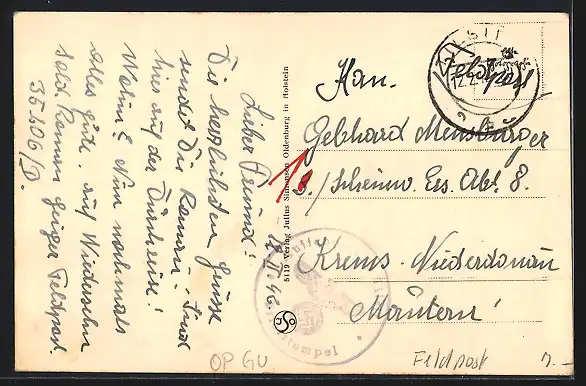 Lieber Freund!
12. II. 42.
Die herzlichsten Grüsse
sendet Dir Roman. Sind
hier auf der Durchreise!
Wohin? Nun nochmals
alles gute. auf Wiedersehn
Sold. Roman Geiger Feldpost.
35406/D.
5119 Verlag Julius Simonsen Oldenburg in Holstein
TILSIT
Feldpost
Kan.
Gebhard Mensburger
3./Scheinw. Ers. Abt. 8.
Krems-Niederdonau
Mautern!
stempel
OP GU
Feldpost